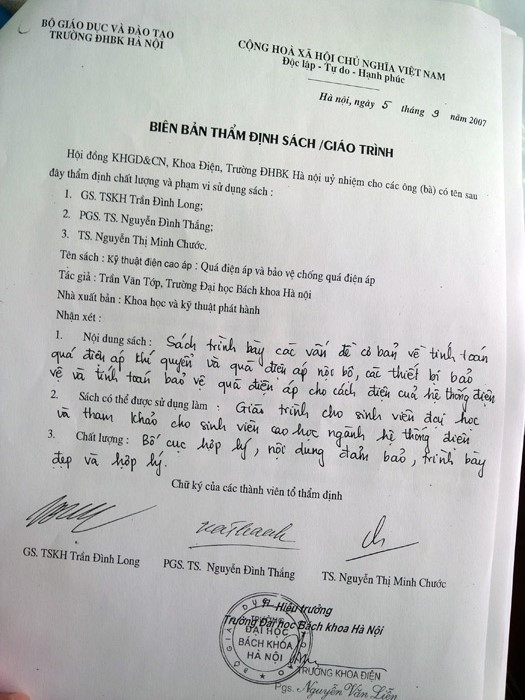 BỘ GIÁO DỤC VÀ ĐÀO TẠO
TRƯỜNG ĐHBK HÀ NỘI
CỘNG HOÀ XÃ HỘI CHỦ NGHĨA VIỆT NAM
Độc lập - Tự do - Hạnh phúc
Hà nội, ngày 5 tháng 9 năm 2007
BIÊN BẢN THẨM ĐỊNH SÁCH /GIÁO TRÌNH
Hội đồng KHGD&CN, Khoa Điện, Trường ĐHBK Hà nội uỷ nhiệm cho các ông (bà) có tên sau
đây thẩm định chất lượng và phạm vi sử dụng sách :
1. GS. TSKH Trần Đình Long;
2. PGS. TS. Nguyễn Đình Thắng;
3. TS. Nguyễn Thị Minh Chước.
Tên sách : Kỹ thuật điện cao áp : Quá điện áp và bảo vệ chống quá điện áp
Tác giả : Trần Văn Tớp, Trường Đại học Bách khoa Hà nội
Nhà xuất bản : Khoa học và kỹ thuật phát hành
Nhận xét :
1. Nội dung sách : Sách trình bày các vấn đề cơ bản về tính toán
quá điện áp khí quyển và quá điện áp nội bộ, các thiết bị bảo
vệ và tính toán bảo vệ quá điện áp cho cách điện của hệ thống điện
2. Sách có thể được sử dụng làm : Giáo trình cho sinh viên đại học
và tham khảo cho sinh viên cao học ngành hệ thống điện
3. Chất lượng : Bố cục hợp lý, nội dung đảm bảo, trình bày
đẹp và hợp lý.
Chữ ký của các thành viên tổ thẩm định
GS. TSKH Trần Đình Long
PGS. TS. Nguyễn Đình Thắng
TS. Nguyễn Thị Minh Chước
Hiệu trưởng
Trường Đại học Bách khoa Hà Nội
ĐẠI HỌC
BÁCH KHOA
HÀ NỘI
TRƯỞNG KHOA ĐIỆN
Pgs. Nguyễn Văn Liễn